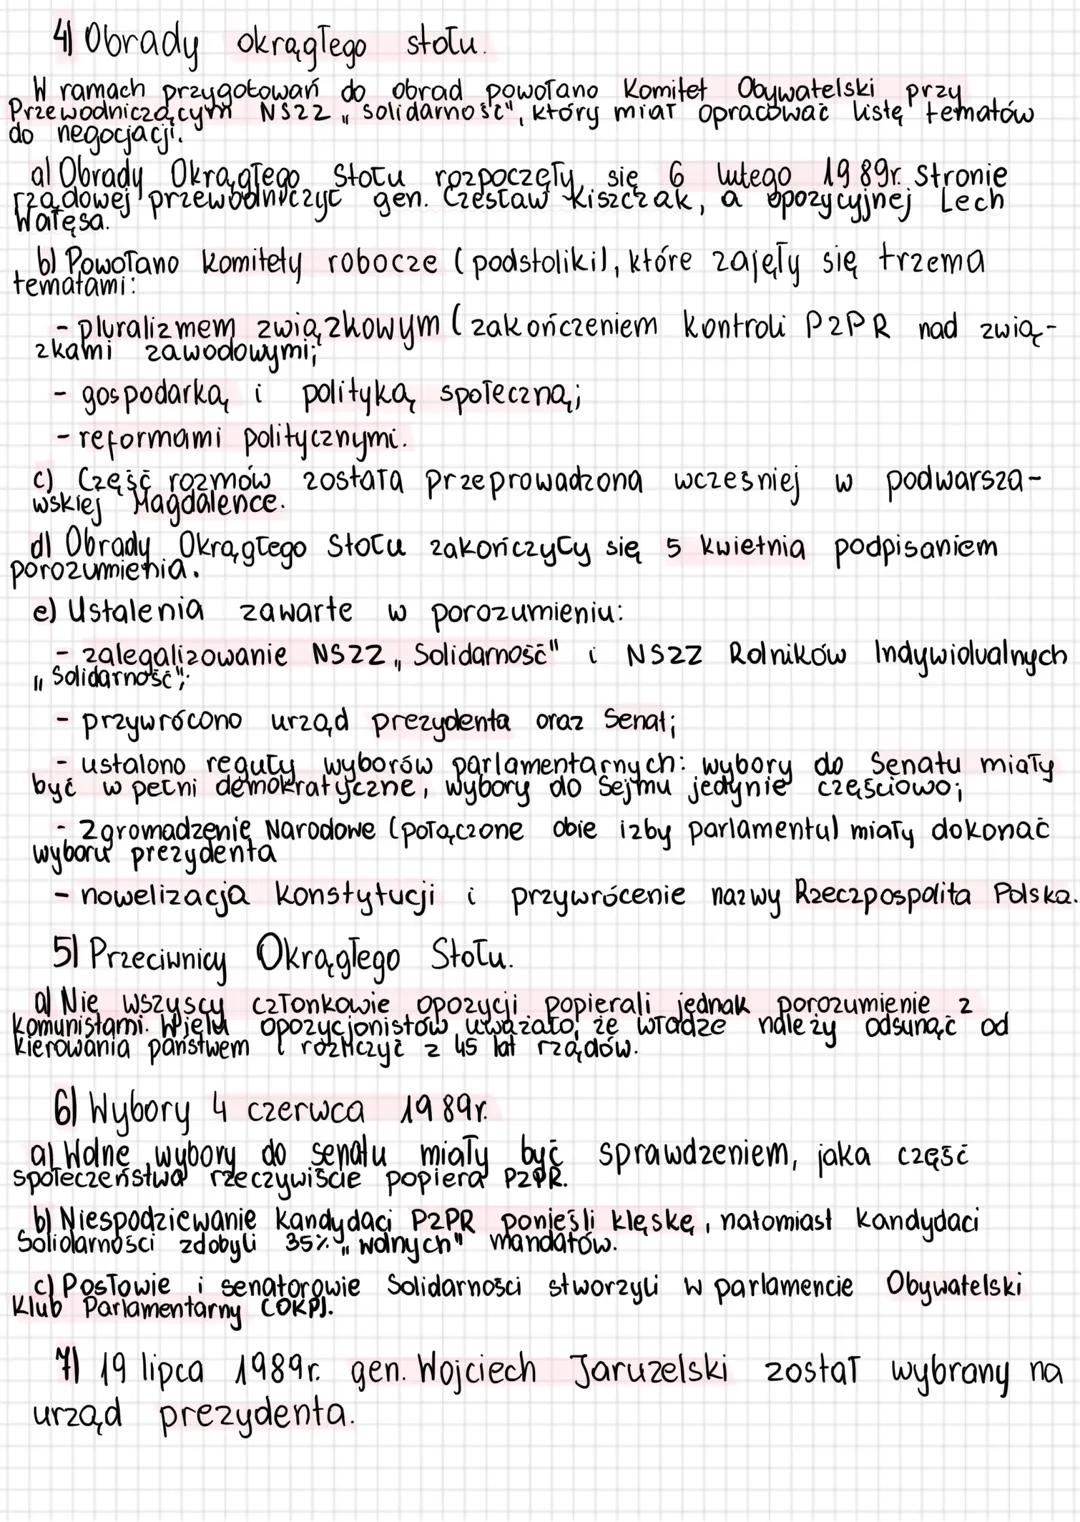 4) Obrady okrągłego stołu.
W ramach przygotowań do obrad powołano Komitet Obywatelski przy
Przewodniczącym NSZZ „Solidarność", który miał opracować listę tematów
do negocjacji.
a) Obrady Okrągłego Stołu rozpoczęły się 6 lutego 1989r. Stronie
rządowej przewodniczył gen. Czesław Kiszczak, a opozycyjnej Lech
Wałęsa.
b) Powołano komitety robocze (podstoliki), które zajęły się trzema
tematami:
- pluralizmem związkowym (zakończeniem kontroli PZPR nad zwią-
zkami zawodowymi;
- gospodarką i polityką społeczną;
- reformami politycznymi.
c) Część rozmów została przeprowadzona wcześniej w podwarsza-
wskiej Magdalence.
d) Obrady Okrągłego Stołu zakończyły się 5 kwietnia podpisaniem
porozumienia.
e) Ustalenia zawarte w porozumieniu:
- zalegalizowanie NSZZ „Solidarność" i NSZZ Rolników Indywidualnych
„Solidarność";
- przywrócono urząd prezydenta oraz Senat;
- ustalono reguły wyborów parlamentarnych: wybory do Senatu miały
być w pełni demokratyczne, wybory do Sejmu jedynie częściowo;
- Zgromadzenie Narodowe (połączone obie izby parlamentu) miały dokonać
wyboru prezydenta
- nowelizacja Konstytucji i przywrócenie nazwy Rzeczpospolita Polska.
5) Przeciwnicy Okrągłego Stołu.
a) Nie wszyscy członkowie opozycji popierali jednak porozumienie z
komunistami. Wielu opozycjonistów uważało, że władze należy odsunąć od
kierowania państwem i rozliczyć z 45 lat rządów.
6) Wybory 4 czerwca 1989r.
a) Wolne wybory do senatu miały być sprawdzeniem, jaka część
społeczeństwa rzeczywiście popiera PZPR.
b) Niespodziewanie kandydaci PZPR ponieśli klęskę, natomiast kandydaci
Solidarności zdobyli 35% „wolnych" mandatów.
c) Posłowie i senatorowie Solidarności stworzyli w parlamencie Obywatelski
Klub Parlamentarny (OKP).
7) 19 lipca 1989r. gen. Wojciech Jaruzelski został wybrany na
urząd prezydenta.